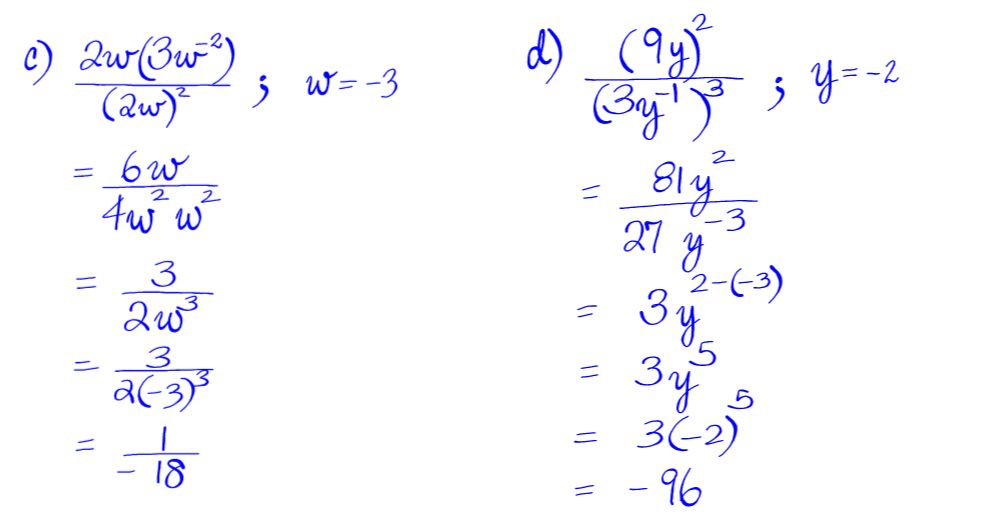 c) 2w(3w⁻²) / (2w)² ; w = -3
= 6w / 4w² w²
= 3 / 2w³
= 3 / 2(-3)³
= 1 / -18
d) (9y)² / (3y⁻¹)³ ; y = -2
= 81y² / 27 y⁻³
= 3y²⁻⁽⁻³⁾
= 3y⁵
= 3(-2)⁵
= -96